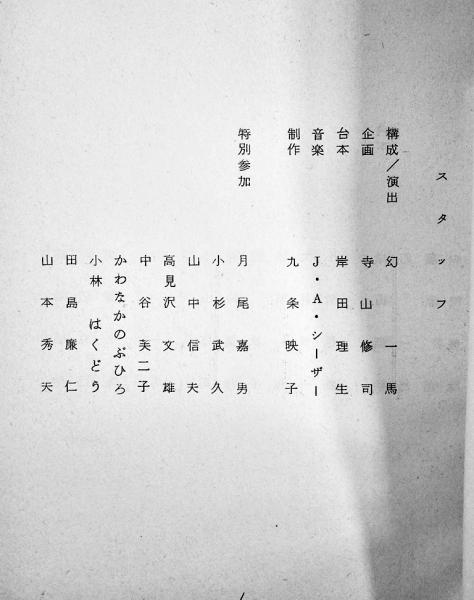 スタッフ
構成／演出 幻一馬
企画 寺山修司
台本 岸田理生
音楽 J・A・シーザー
制作 九条映子
特別参加 月尾嘉男
小杉武久
山中信夫
高見沢文雄
中谷芙二子
かわなかのぶひろ
小林はくどう
田島廉仁
山本秀夫